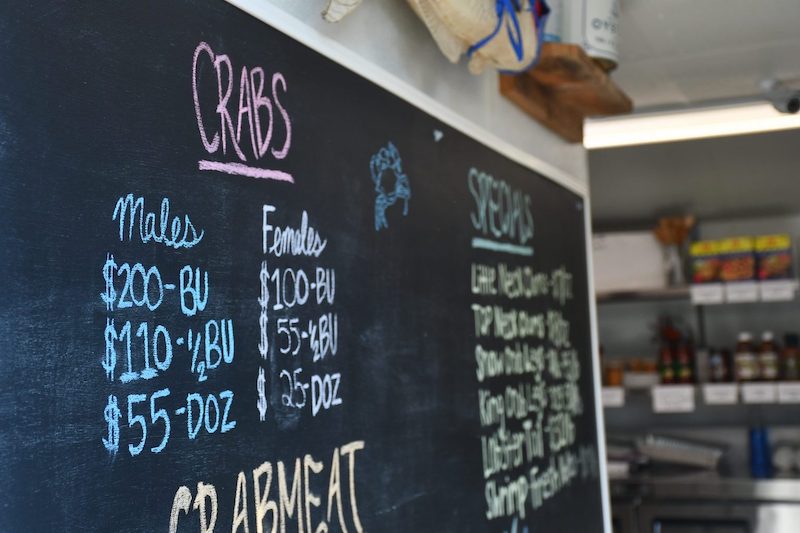 CRABS
Males
$200-BU
$110-½BU
$55-DOZ
Females
$100-BU
$55-½BU
$25-DOZ
CRABMEAT
SPECIALS
Little Neck
Top Neck
Snow Crab Legs
King Crab Legs
Lobster Tail
Shrimp Fresh